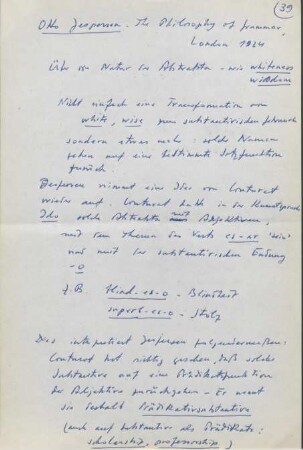 39
Otto Jespersen. The Philosophy of Grammar,
London 1924
Über die Natur der Abstrakta - wie whiteness
wisdom
Nicht einfach eine Transformation von
white, wise zum substantivischen Gebrauch
sondern etwas mehr: solche Namen
gehen auf eine bestimmte Satzfunktion
zurück.
Jespersen nimmt eine Idee von Couturat
wieder auf. Couturat hatte in der Kunstsprache
Ido solche Abstrakta mit Adjektiven,
mit dem Thema des Verbs es-ar 'sein'
und mit der substantivischen Endung
-o
z.B. blind-es-o - Blindheit
superb-es-o - Stolz
Dies interpretiert Jespersen folgendermaßen:
Couturat hat richtig gesehen, daß solche
Substantive auf eine Prädikatsfunktion
der Adjektive zurückgehen - Er nennt
sie deshalb Prädikativsubstantive
(auch auf Substantive als Prädikate:
scholarship, professorship)